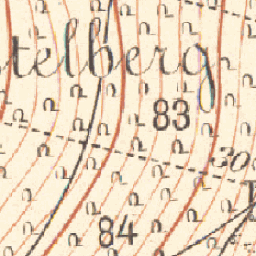 telberg
83
30
84